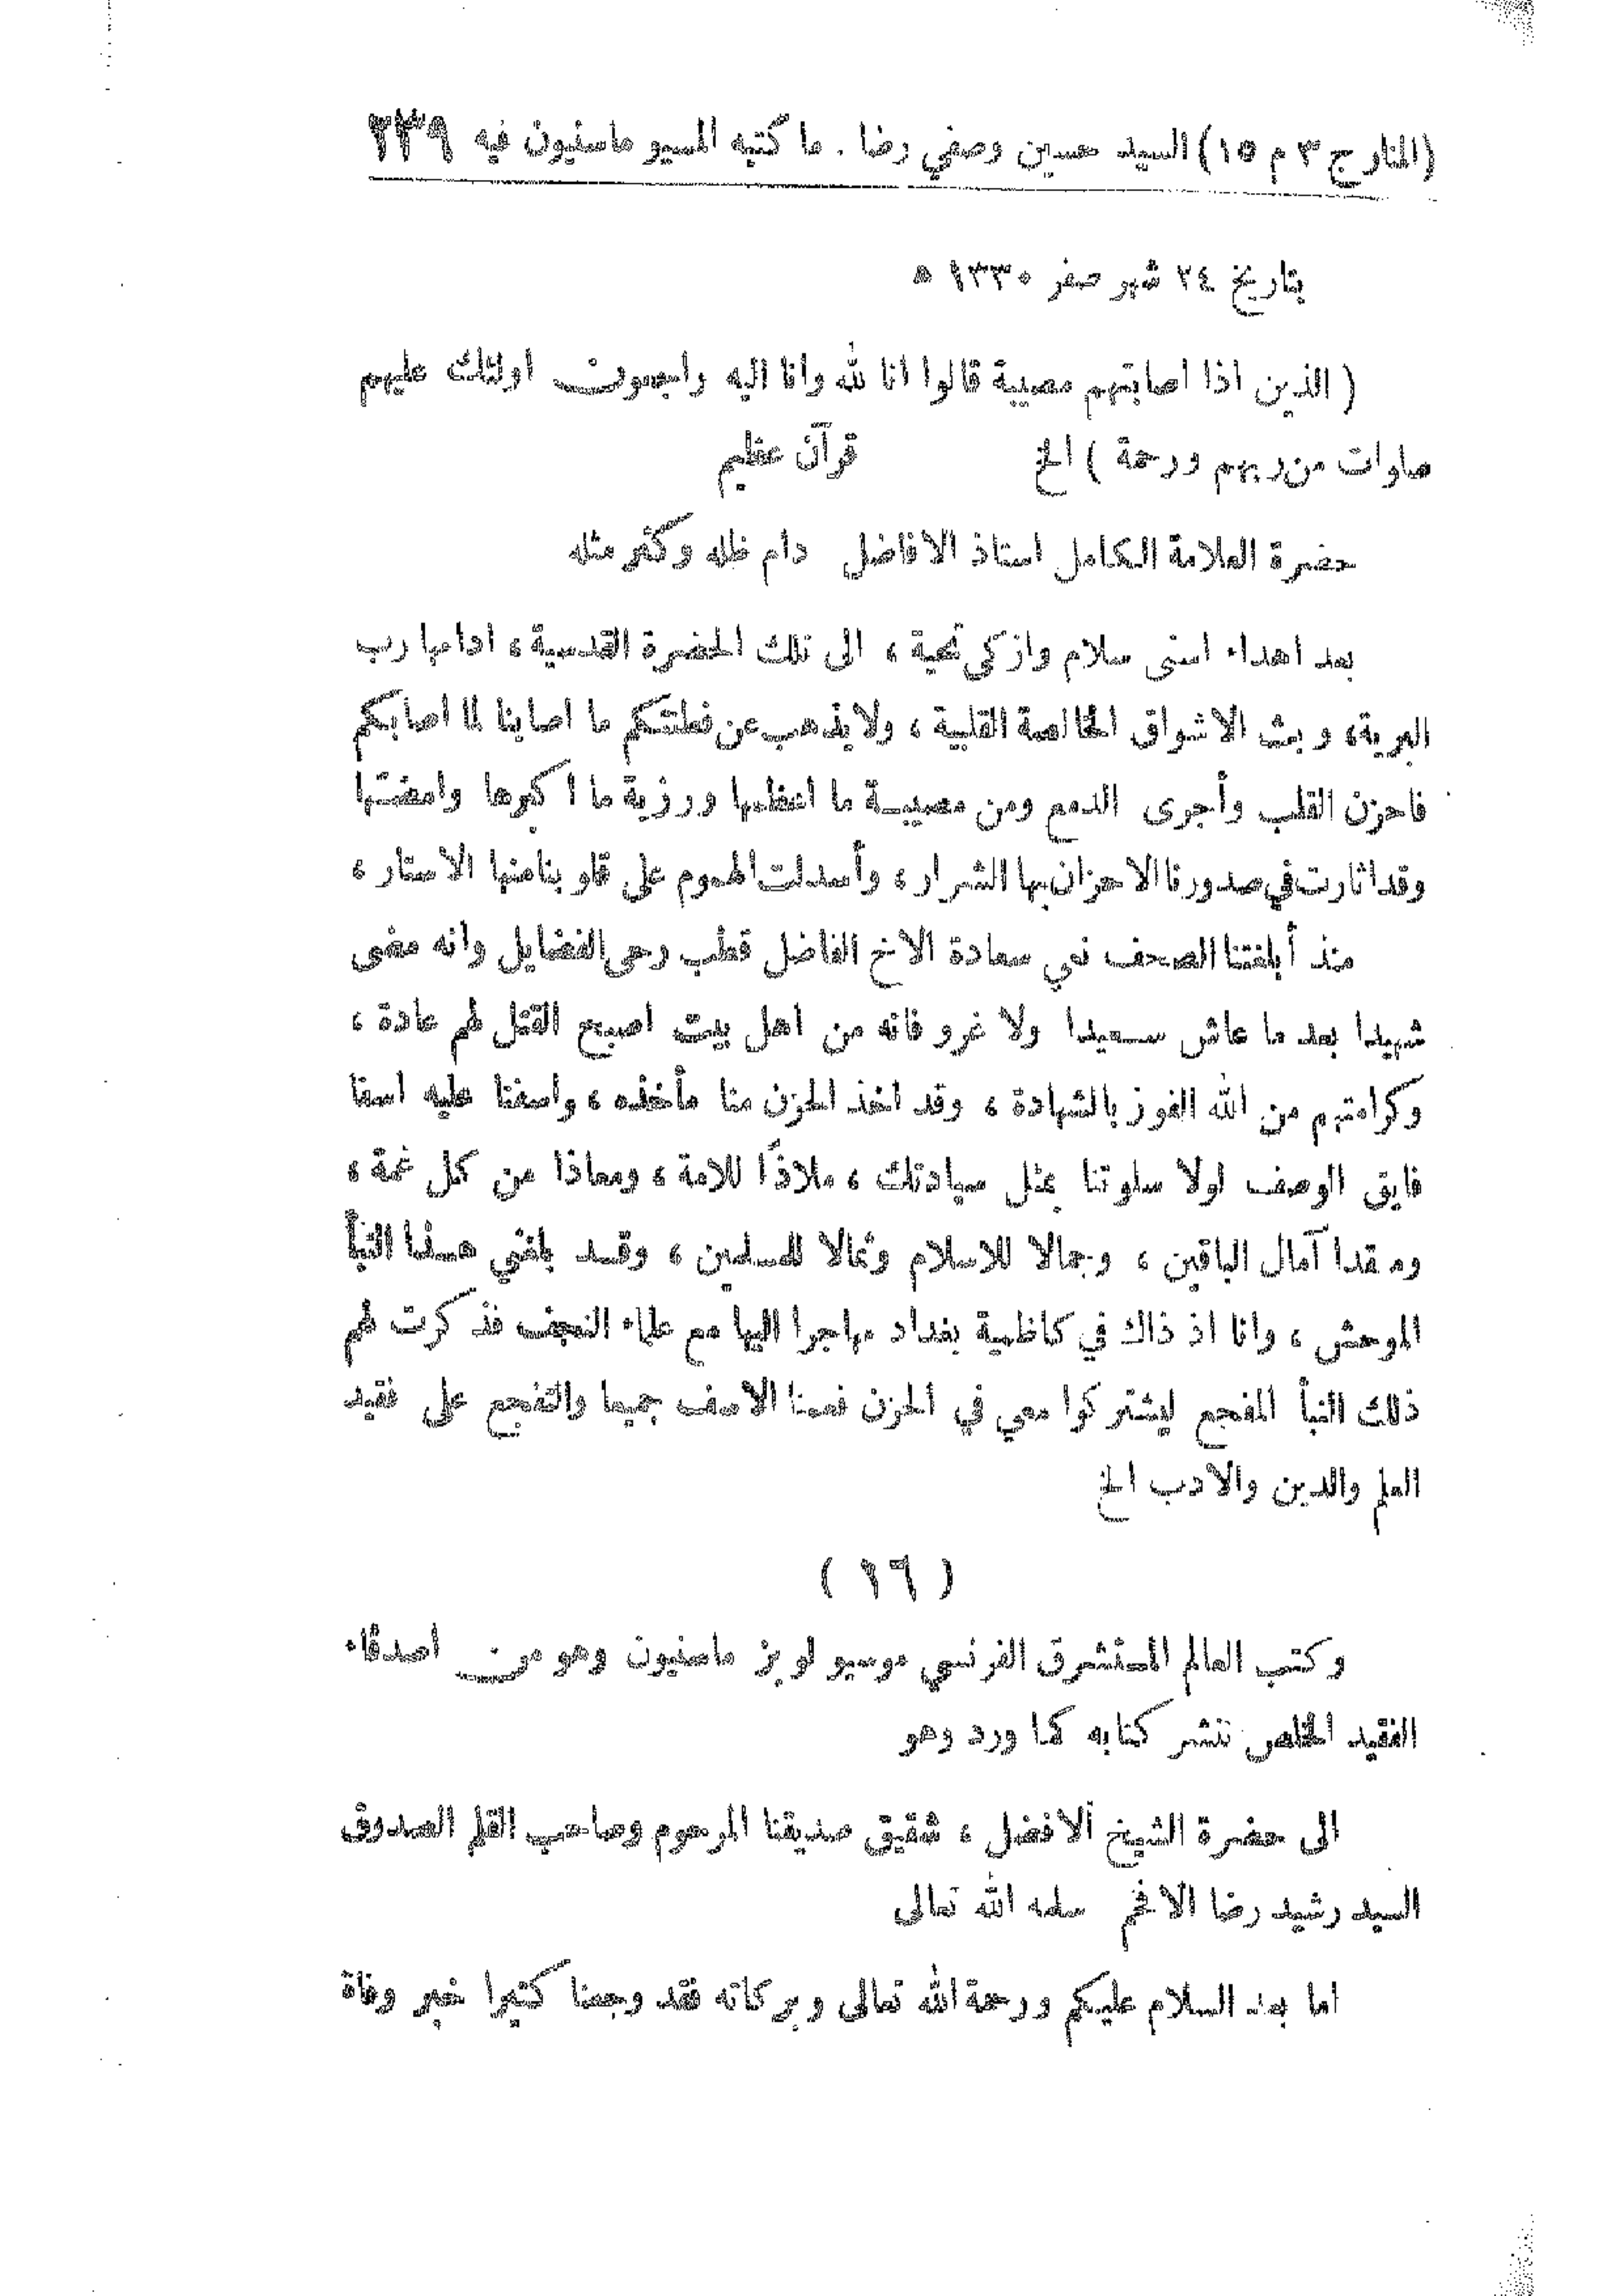 (المنار ج ٣ م ١٥) السيد حسين وصفي رضا . ما كتبه المسيو ماسنيون فيه ٢٣٩
بتاريخ ٢٤ شهر صفر ١٣٣٠ ه
( الذين اذا اصابتهم مصيبة قالوا انا لله وانا اليه راجعون اولئك عليهم
صلوات من ربهم ورحمة ) الخ قرآن عظيم
حضرة العلامة الكامل استاذ الافاضل دام ظله وكثر مثله
بعد اهداء اسنى سلام وازكى تحية ، الى تلك الحضرة القدسية ، ادامها رب
البرية، وبث الاشواق الخالصة القلبية ، ولا يذهب عن فطنتكم ما اصابنا لما اصابكم
فاحزن القلب وأجرى الدمع ومن مصيبة ما اعظمها ورزية ما أكبرها وامضتها
وقد اثارت في صدورنا الاحزان بها الشرار ، وأسدلت الهموم على قلوبنا منها الاستار ،
منذ أبلغتنا الصحف نعي سعادة الاخ الفاضل قطب رحى الفضايل وانه مضى
شهيدا بعد ما عاش سعيدا ولا غرو فانه من اهل بيت اصبح القتل لهم عادة ،
وكرامتهم من الله الفوز بالشهادة ، وقد اخذ الحزن منا مأخذه ، واسفنا عليه اسفا
فايق الوصف لولا سلوتنا بمثل سيادتك ، ملاذًا للامة ، ومعاذا من كل غمة ،
ومعقدا آمال الباقين ، وجمالا للاسلام وثمالا للمسلمين ، وقد بلغني هذا النبأ
الموحش ، وانا اذ ذاك في كاظمية بغداد مهاجرا اليها مع علماء النجف فذكرت لهم
ذلك النبأ المفجع ليشتركوا معي في الحزن فعمنا الاسف جميعا والتفجع على فقيد
العلم والدين والادب الخ
( ١٦ )
وكتب العالم المستشرق الفرنسي موسيو لويز ماسنيون وهو من اصدقاء
الفقيد الخلص ننشر كتابه كما ورد وهو
الى حضرة الشيخ الافضل ، شقيق صديقنا المرحوم وصاحب القلم الصدوق
السيد رشيد رضا الافخم سلمه الله تعالى
اما بعد السلام عليكم ورحمة الله تعالى وبركاته فقد وجعنا كثيرا خبر وفاة